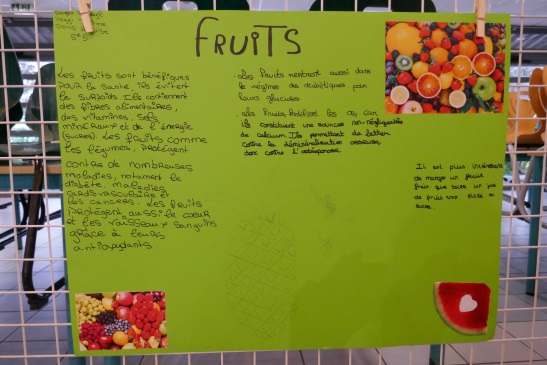 FRUITS
Les fruits sont bénéfiques
pour la santé ils évitent
le surpoids. Ils contiennent
des fibres alimentaires,
des vitamines, sels
minéraux et de l'énergie
(sucres). Les fruits comme
les légumes, protègent
contre de nombreuses
maladies, notament le
diabète, maladies
cardiovasculaire et
des cancers. Les fruits
protègent aussi le coeur
et les vaisseaux sanguins
grâce à leurs
antioxydants
. Les fruits rentrent aussi dans
le régimes des diabétiques par
leurs glucides.
. Les fruits fortifient les os car
ils constituent une source non négligeable
de calcium. Ils permettent de lutter
contre la déminéralisation osseuse,
donc contre l'ostéoporose.
Il est plus intéressant
de manger un fruit
frais que boire un jus
de fruit